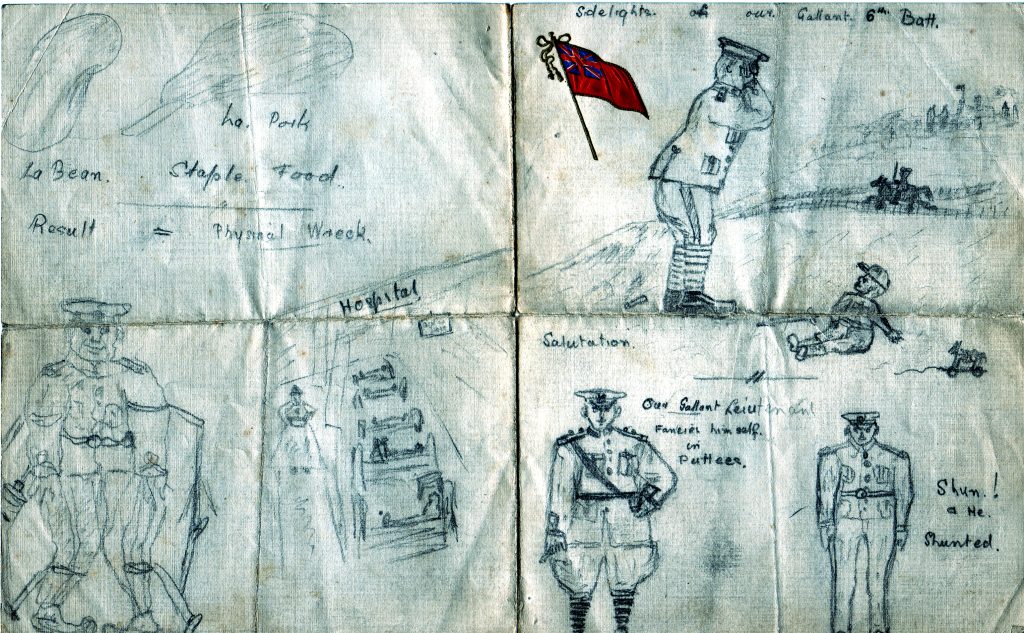 La. Pork
La Bean. Staple Food.
Result = Physical Wreck.
Hospital
Sidelights. of our Gallant. 6th Batt.
Salutation.
Our Gallant Lieutenant
Fancies himself.
in
Puttees.
Shun.!
a He.
Shunted.